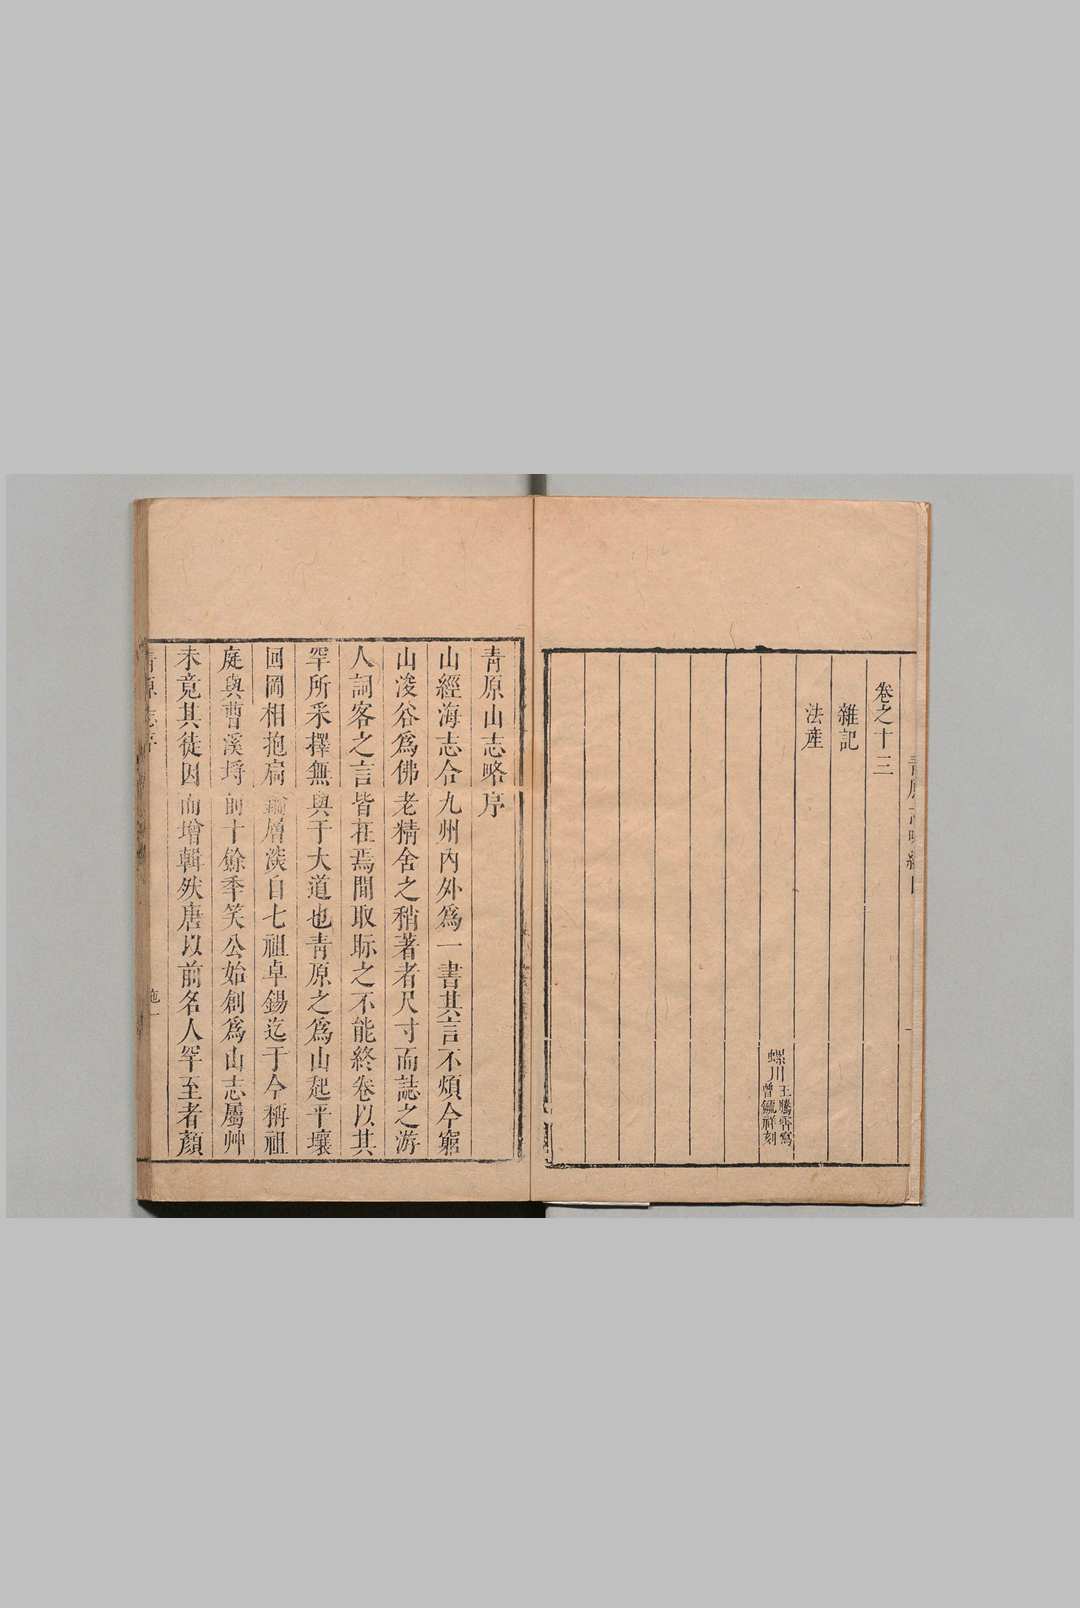 卷之十三
雜記
法產
螺川
王騰霄寫
曾毓祥刻
青原山志略序
山經海志合九州內外爲一書其言不煩今窮
山浚谷爲佛老精舍之稍著者尺寸而誌之游
人詞客之言皆在焉間取眎之不能終卷以其
罕所采擇無與于大道也青原之爲山起平壤
回岡相抱扃 層深自七祖卓錫迄于今稱祖
庭與曹溪埒前十餘季笑公始創爲山志屬艸
未竟其徒因而增輯然唐以前名人罕至者顏